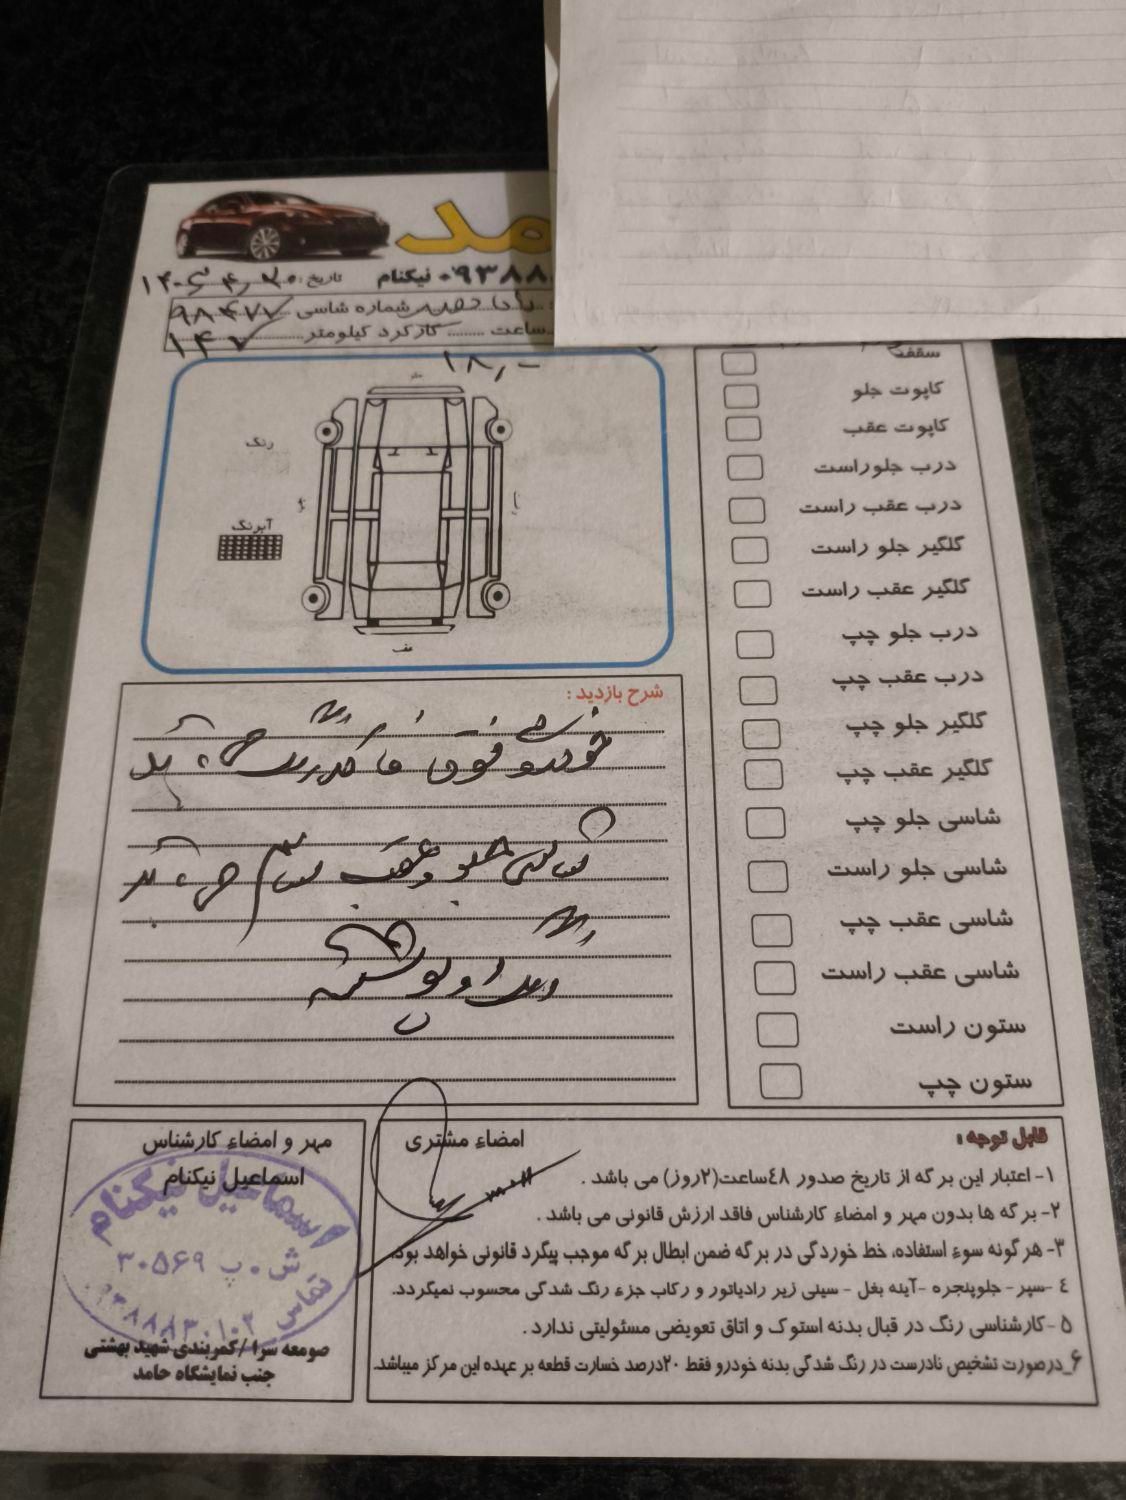 مد
۰۹۳۸۸ نیکنام تاریخ : ۱۴۰۴٫۴٫۲۰
شماره شاسی ۹۸۴۷۷
ساعت کارکرد کیلومتر ۱۴۷
سقف
کاپوت جلو
کاپوت عقب
درب جلو راست
درب عقب راست
گلگیر جلو راست
گلگیر عقب راست
درب جلو چپ
درب عقب چپ
گلگیر جلو چپ
گلگیر عقب چپ
شاسی جلو چپ
شاسی جلو راست
شاسی عقب چپ
شاسی عقب راست
ستون راست
ستون چپ
جلو
رنگ
آبرنگ
عقب
شرح بازدید :
خودرو فوق فاقد رنگ می باشد
شاسی جلو و عقب سالم می باشد
قابل توجه :
۱- اعتبار این برگه از تاریخ صدور ٤٨ساعت(۲روز) می باشد .
۲- برگه ها بدون مهر و امضاء کارشناس فاقد ارزش قانونی می باشد .
۳- هر گونه سوء استفاده، خط خوردگی در برگه ضمن ابطال برگه موجب پیگرد قانونی خواهد بود.
٤ -سپر - جلوپنجره -آینه بغل - سینی زیر رادیاتور و رکاب جزء رنگ شدگی محسوب نمیگردد.
۵ -کارشناسی رنگ در قبال بدنه استوک و اتاق تعویضی مسئولیتی ندارد .
۶_درصورت تشخیص نادرست در رنگ شدگی بدنه خودرو فقط ۲۰درصد خسارت قطعه بر عهده این مرکز میباشد.
امضاء مشتری
مهر و امضاء کارشناس
اسماعیل نیکنام
اسماعیل نیکنام
ش.پ ۳۰۵۶۹
تماس ۰۹۳۸۸۸۳۰۱۰۲
صومعه سرا /کمربندی شهید بهشتی
جنب نمایشگاه حامد